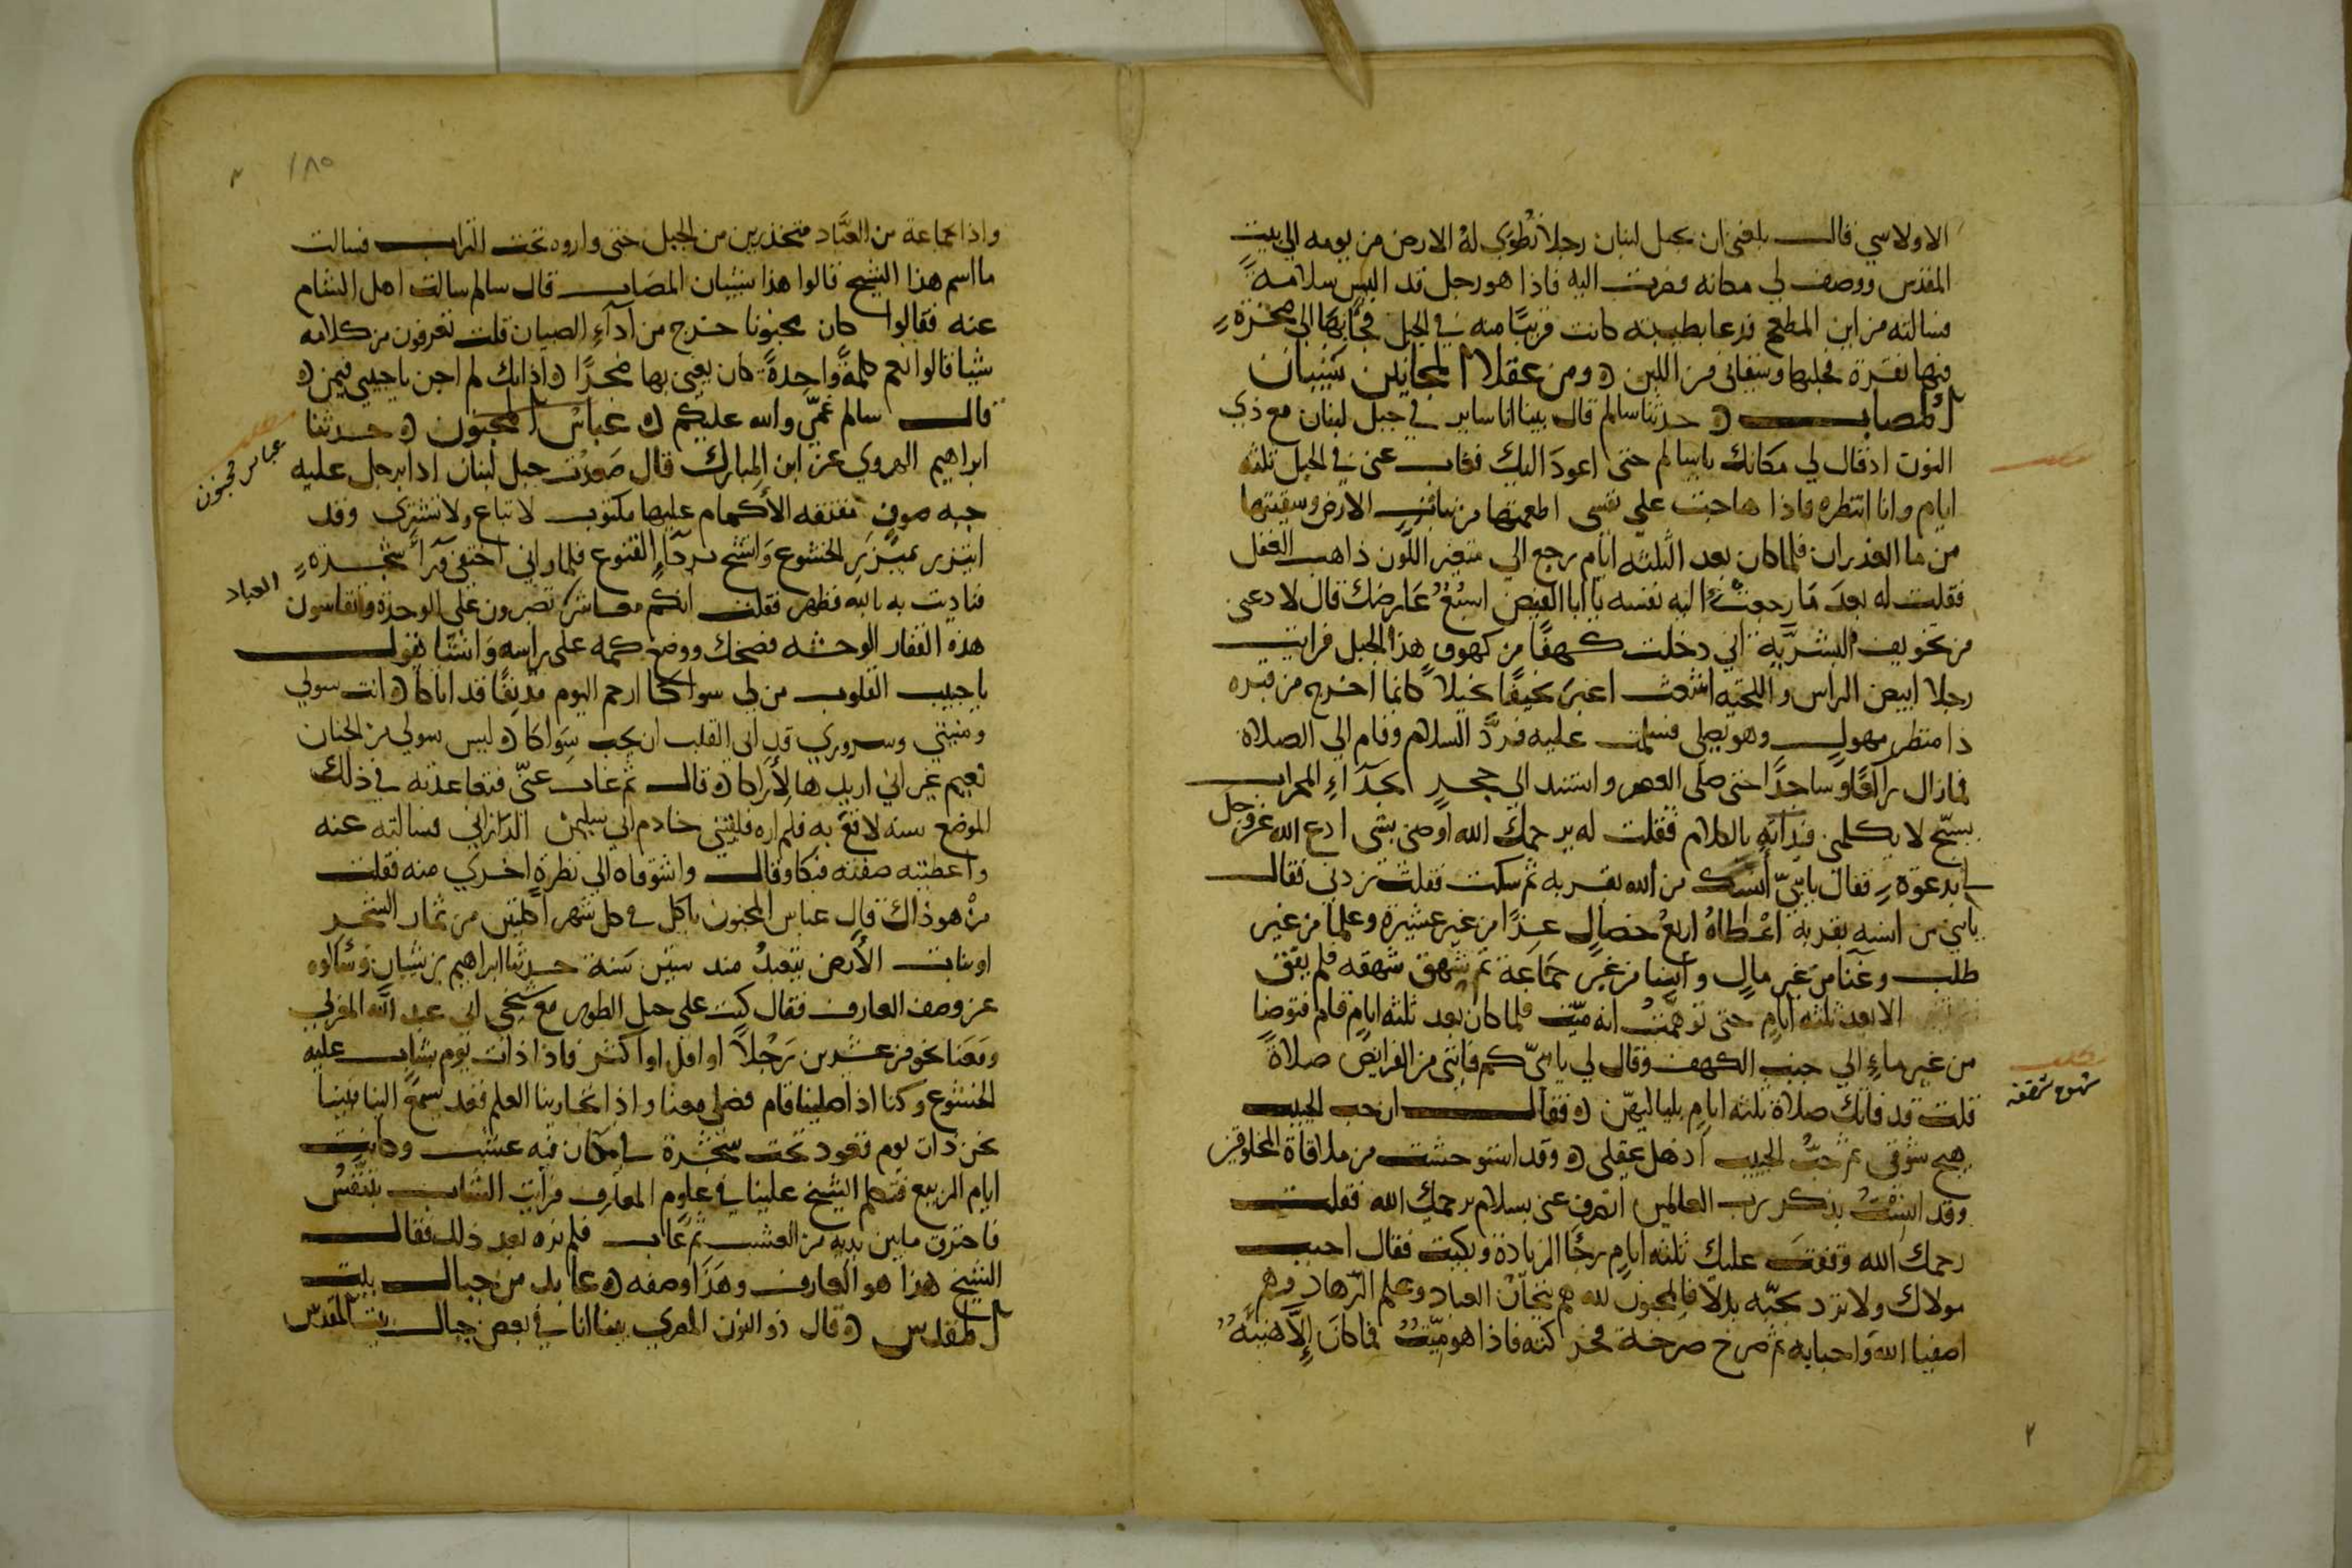 الاولاسي قال بلغني ان بجبل لبنان رجلا تُطوَي لهُ الارض من يومه الي بيت
المقدس ووصف لي مكانه فصرت اليه فاذا هو رجل قد البس سلامة
فسالته من اين المطعم فدعا بظبية كانت قريبًا منه في الجبل فجآ بها الي صخرة
فيها نقرة فحلبها وسقاني من اللبن ومن عقلا المجانين شيبان
المصاب حدثنا سالم قال بينا انا ساير في جبل لبنان مع ذي
النون اذ قال لي مكانك يا سالم حتى اعودَ اليك فغاب عني في الجبل ثلثه
ايام وانا انتظره فاذا هاجت علي نفسي اطعمتها من نبات الارض وسقيتها
من ما الغدران فلما كان بعد الثلثه ايام رجع الي متغير اللون ذاهب العقل
فقلت له بعدَ مَا رجعت اليه نفسه يا ابا الفيض اسبُعُ عَارضك قال لا دعني
من تخويف البشريَّة اني دخلت كهفًا من كهوف هذا الجبل فرايت
رجلا ابيض الراس واللحيه اشعث اغبر نحيفًا نحيلا كانما اخرج من قبره
ذا منظر مهول وهو يصلي فسلمت عليه فردَّ السلام وقام الي الصلاة
فما زال راكعًا وساجدًا حتى صلى العصر واستند الي حجرٍ بحذاءِ المحراب
يسبّح لا يكلمني فبداته بالكلام فقلت له يرحمك الله اوصني بشى ادع الله عز وجل
لي بدعوة فقال يا بنيّ آنسك من الله بقربه ثم سكت فقلت زدني فقال
يا بني من انسه بقربه اعْطاهُ اربعُ خصالٍ عِزًا من غير عشيرة وعلمًا من غير
طلب وغنا من غير مالٍ وأنسا من غير جَمَاعَة ثم شهق شهقه فلم يفق
الا بعد ثلثه ايامٍ حتى توهمت انه ميّت فلما كان بعد ثلثه ايامٍ قام فتوضا
من غير ماءٍ الي جنب الكهف وقال لي يا بنيّ كم فاتني من الفرايض صلاة
قلت قد فاتك صلاة ثلثه ايامٍ بلياليهن فقال ان حب الحبيب
هيج شوقي ثم حبُّ الحبيب اذهل عقلي وقد استوحشت من ملاقاة المخلوقين
وقد انِسْتُ بذكر رب العالمين انصرف عني بسلام يرحمك الله فقلت
رحمك الله وقفتَ عليك ثلثه ايامٍ رجَا الزيادة وبكيت فقال احبب
مولاك ولا ترد بحبّه بدلًا فالمحبون لله هم تيجانُ العباد وعلم الزّهاد وهم
اصفيا الله وَاحبابه ثم صرخ صرخة فحركته فاذا هو ميّتٌ فما كانَ إلّا هنيئة
مطلب
مطلب
شهق شهقه
٢
واذا بجماعة من العبَّاد منحدرين من الجبل حتى واروه تحت التراب فسالت
ما اسم هذا الشيخ قالوا هذا شيبان المصَاب قال سالم سالت اهل الشام
عنه فقالوا كان مجنونا خرج من اذآءِ الصبيان قلت تعرفون من كلامه
شيا قالوا نعم كلمةً واحِدةً كان يغني بها ضجرًا اذا بك لم اجن يا حبيبي فبمن
قال سالم غمّي والله عليكم عباس المجنون حدثنا
ابراهيم الهروي عن ابن المبارك قال صَعِدْت جبل لبنان اذا برجل عليه
جبه صوفٍ مفتقه الأكمام عليها مكتوب لا تباع ولا تشترى وقد
ايتزر بميْزر الخشوع وَاتشح بردآءِ القنوع فلما راني اختفى ورآءَ شجرة
فناديت به بالله فظهر فقلت انكم معاشر تصبرون على الوحدة وتقاسون
هذه القفار الوحشه فضحك ووضع كمه على راسه وَانشا يقول
يا حبيب القلوب من لي سواكا ارحم اليوم مذنبًا قد اتاكا انت سولي
ومنيتي وسروري قد ابى القلب ان يحب سِوَاكا ليس سولي من الجنان
نعيم غير اني اريدها لِأَرَاكا قال ثم غاب عنّي فتعاهدته في ذلك
الموضع سنه لاقع به فلم اره فلقيني خادم ابي سليمن الدَّاراني فسالته عنه
واعطيته صفته فبكا وقال واشوقاه الي نظرةٍ اخرَى منه فقلت
منْ هو ذاك قال عباس المجنون ياكل في كل شهر اكلتين من ثمار الشجر
او نبات الأرض يتعبدُ منذ ستين سَنة حدثنا ابراهيم بن شيبان وَسُالوه
عن وصف العارف فقال كنت على جبل الطور مع شيخي ابي عبد الله المغربي
ومَعَنا نحو من عشرين رَجُلاً او اقل او اكثر فاذا ذات يوم شاب عليه
الخشوع وكنا اذا صلينا قام فصلى معنا واذا تجارينا العلم قعد يسمعُ الينا فبينا
نحن ذات يوم قعود تحت شجرة في مكان فيه عشب وكانت
ايام الربيع فتكلم الشيخ علينا في علوم المعارف فرايت الشاب يتنفسُ
فاحترق ما بين يديه من العشب ثم غاب فلم نره بعد ذلك فقال
الشيخ هذا هو العارف وهَذَا وصفه عابد من جبال بيت
المقدس قال ذو النون المصري بينا انا في بعض جبال بيت المقدس
مطلب
عباس مجنون
العباد
١٨٥